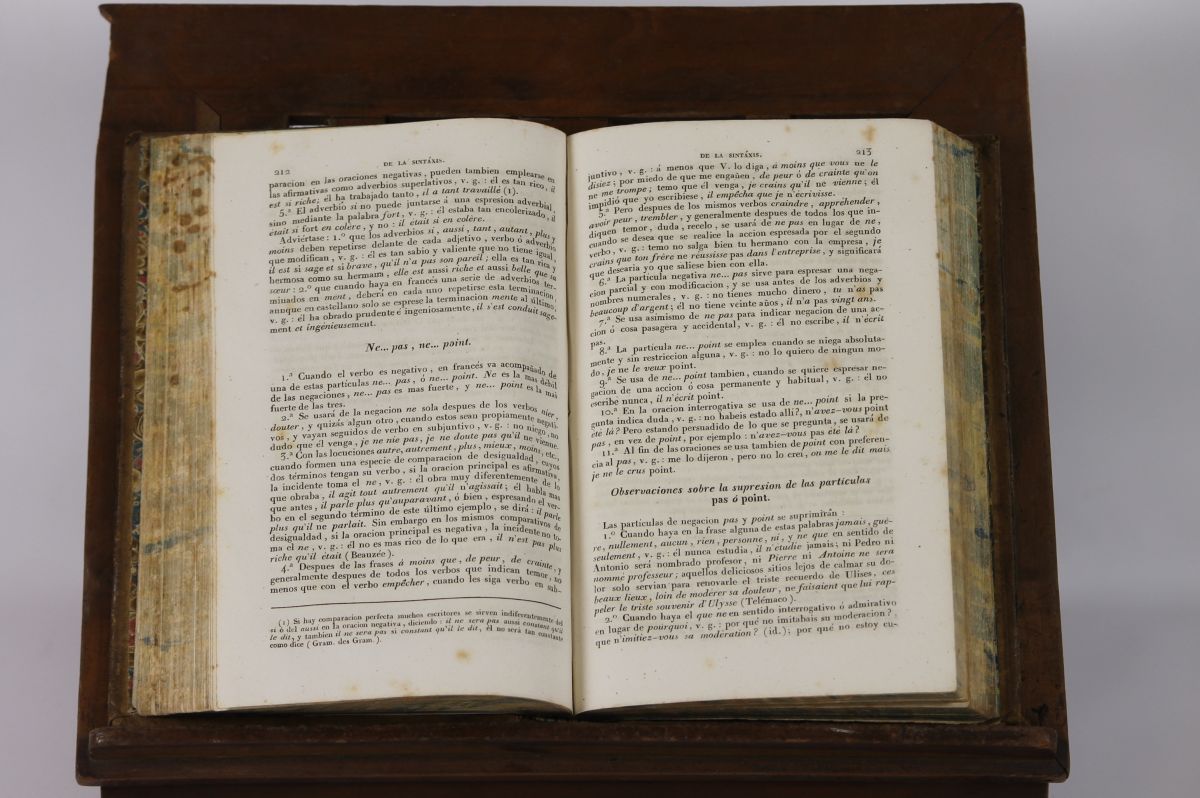 212
DE LA SINTÁXIS.
paracion en las oraciones negativas, pueden tambien emplearse en
las afirmativas como adverbios superlativos, v. g. : él es tan rico, il
est si riche; él ha trabajado tanto, il a tant travaillé (1).
5.ª El adverbio si no puede juntarse á una espresion adverbial,
sino mediante la palabra fort, v. g. : él estaba tan encolerizado, il
était si fort en colère, y no : il était si en colère.
Adviértase : 1.º que los adverbios si, aussi, tant, autant, plus y
moins deben repetirse delante de cada adjetivo, verbo ó adverbio
que modifican, v. g. : él es tan sabio y valiente que no tiene igual,
il est si sage et si brave, qu'il n'a pas son pareil; ella es tan rica y
hermosa como su hermana, elle est aussi riche et aussi belle que sa
sœur : 2.º que cuando haya en francés una serie de adverbios ter-
minados en ment, deberá en cada uno repetirse esta terminacion,
aunque en castellano solo se esprese la terminacion mente al último,
v. g. : él ha obrado prudente é ingeniosamente, il s'est conduit sage-
ment et ingénieusement.
Ne... pas, ne... point.
1.ª Cuando el verbo es negativo, en francés va acompañado de
una de estas partículas ne... pas, ó ne... point. Ne es la mas débil
de las negaciones, ne... pas es mas fuerte, y ne... point es la mas
fuerte de las tres.
2.ª Se usará de la negacion ne sola despues de los verbos nier,
douter, y quizás algun otro, cuando estos sean propiamente negati-
vos, y vayan seguidos de verbo en subjuntivo, v. g. : no niego, no
dudo que él venga, je ne nie pas, je ne doute pas qu'il ne vienne.
3.ª Con las locuciones autre, autrement, plus, mieux, moins, etc.,
cuando formen una especie de comparacion de desigualdad, cuyos
dos términos tengan su verbo, si la oracion principal es afirmativa,
la incidente toma el ne, v. g. : él obra muy diferentemente de lo
que obraba, il agit tout autrement qu'il n'agissait; él habla mas
que antes, il parle plus qu'auparavant, ó bien, espresando el ver-
bo en el segundo término de este último ejemplo, se dirá : il parle
plus qu'il ne parlait. Sin embargo en los mismos comparativos de
desigualdad, si la oracion principal es negativa, la incidente no to-
ma el ne, v. g. : él no es mas rico de lo que era, il n'est pas plus
riche qu'il était (Beauzée).
4.ª Despues de las frases á moins que, de peur, de crainte, y
generalmente despues de todos los verbos que indican temor, no
menos que con el verbo empêcher, cuando les siga verbo en sub-
(1) Si hay comparacion perfecta muchos escritores se sirven indiferentemente del
si ó del aussi en la oracion negativa, diciendo : il ne sera pas aussi constant qu'il
le dit, y tambien il ne sera pas si constant qu'il le dit, él no será tan constante
como dice (Gram. des Gram.).
DE LA SINTÁXIS.
213
juntivo, v. g. : á menos que V. lo diga, á moins que vous ne le
disiez; por miedo de que me engañen, de peur ó de crainte qu'on
ne me trompe; temo que él venga, je crains qu'il ne vienne; él
impidió que yo escribiese, il empêcha que je n'écrivisse.
5.ª Pero despues de los mismos verbos craindre, appréhender,
avoir peur, trembler, y generalmente despues de todos los que in-
diquen temor, duda, recelo, se usará de ne pas en lugar de ne,
cuando se desea que se realice la accion espresada por el segundo
verbo, v. g. : temo no salga bien tu hermano con la empresa, je
crains que ton frère ne réussisse pas dans l'entreprise, y significará
que desearia yo que saliese bien con ella.
6.ª La partícula negativa ne... pas sirve para espresar una nega-
cion parcial y con modificacion, y se usa antes de los adverbios y
nombres numerales, v. g. : no tienes mucho dinero, tu n'as pas
beaucoup d'argent; él no tiene veinte años, il n'a pas vingt ans.
7.ª Se usa asimismo de ne pas para indicar negacion de una ac-
cion ó cosa pasagera y accidental, v. g. : él no escribe, il n'écrit
pas.
8.ª La partícula ne... point se emplea cuando se niega absoluta-
mente y sin restriccion alguna, v. g. : no lo quiero de ningun mo-
do, je ne le veux point.
9.ª Se usa de ne... point tambien, cuando se quiere espresar ne-
gacion de una accion ó cosa permanente y habitual, v. g. : él no
escribe nunca, il n'écrit point.
10.ª En la oracion interrogativa se usa de ne... point si la pre-
gunta indica duda, v. g. : no habeis estado allí?, n'avez-vous point
été là? Pero estando persuadido de lo que se pregunta, se usará de
pas, en vez de point, por ejemplo : n'avez-vous pas été là?
11.ª Al fin de las oraciones se usa tambien de point con preferen-
cia al pas, v. g. : me lo dijeron, pero no lo crei, on me le dit mais
je ne le crus point.
Observaciones sobre la supresion de las partículas
pas ó point.
Las partículas de negacion pas y point se suprimirán :
1.º Cuando haya en la frase alguna de estas palabras jamais, gué-
re, nullement, aucun, rien, personne, ni, y ne que en sentido de
seulement, v. g. : él nunca estudia, il n'étudie jamais; ni Pedro ni
Antonio será nombrado profesor, ni Pierre ni Antoine ne sera
nommé professeur; aquellos deliciosos sitios lejos de calmar su do-
lor solo servian para renovarle el triste recuerdo de Ulises, ces
beaux lieux, loin de modérer sa douleur, ne faisaient que lui rap-
peler le triste souvenir d'Ulysse (Telémaco).
2.º Cuando haya el que ne en sentido interrogativo ó admirativo
en lugar de pourquoi, v. g. : por qué no imitabais su moderacion?,
que n'imitiez-vous sa modération? (id.); por qué no estoy cu-